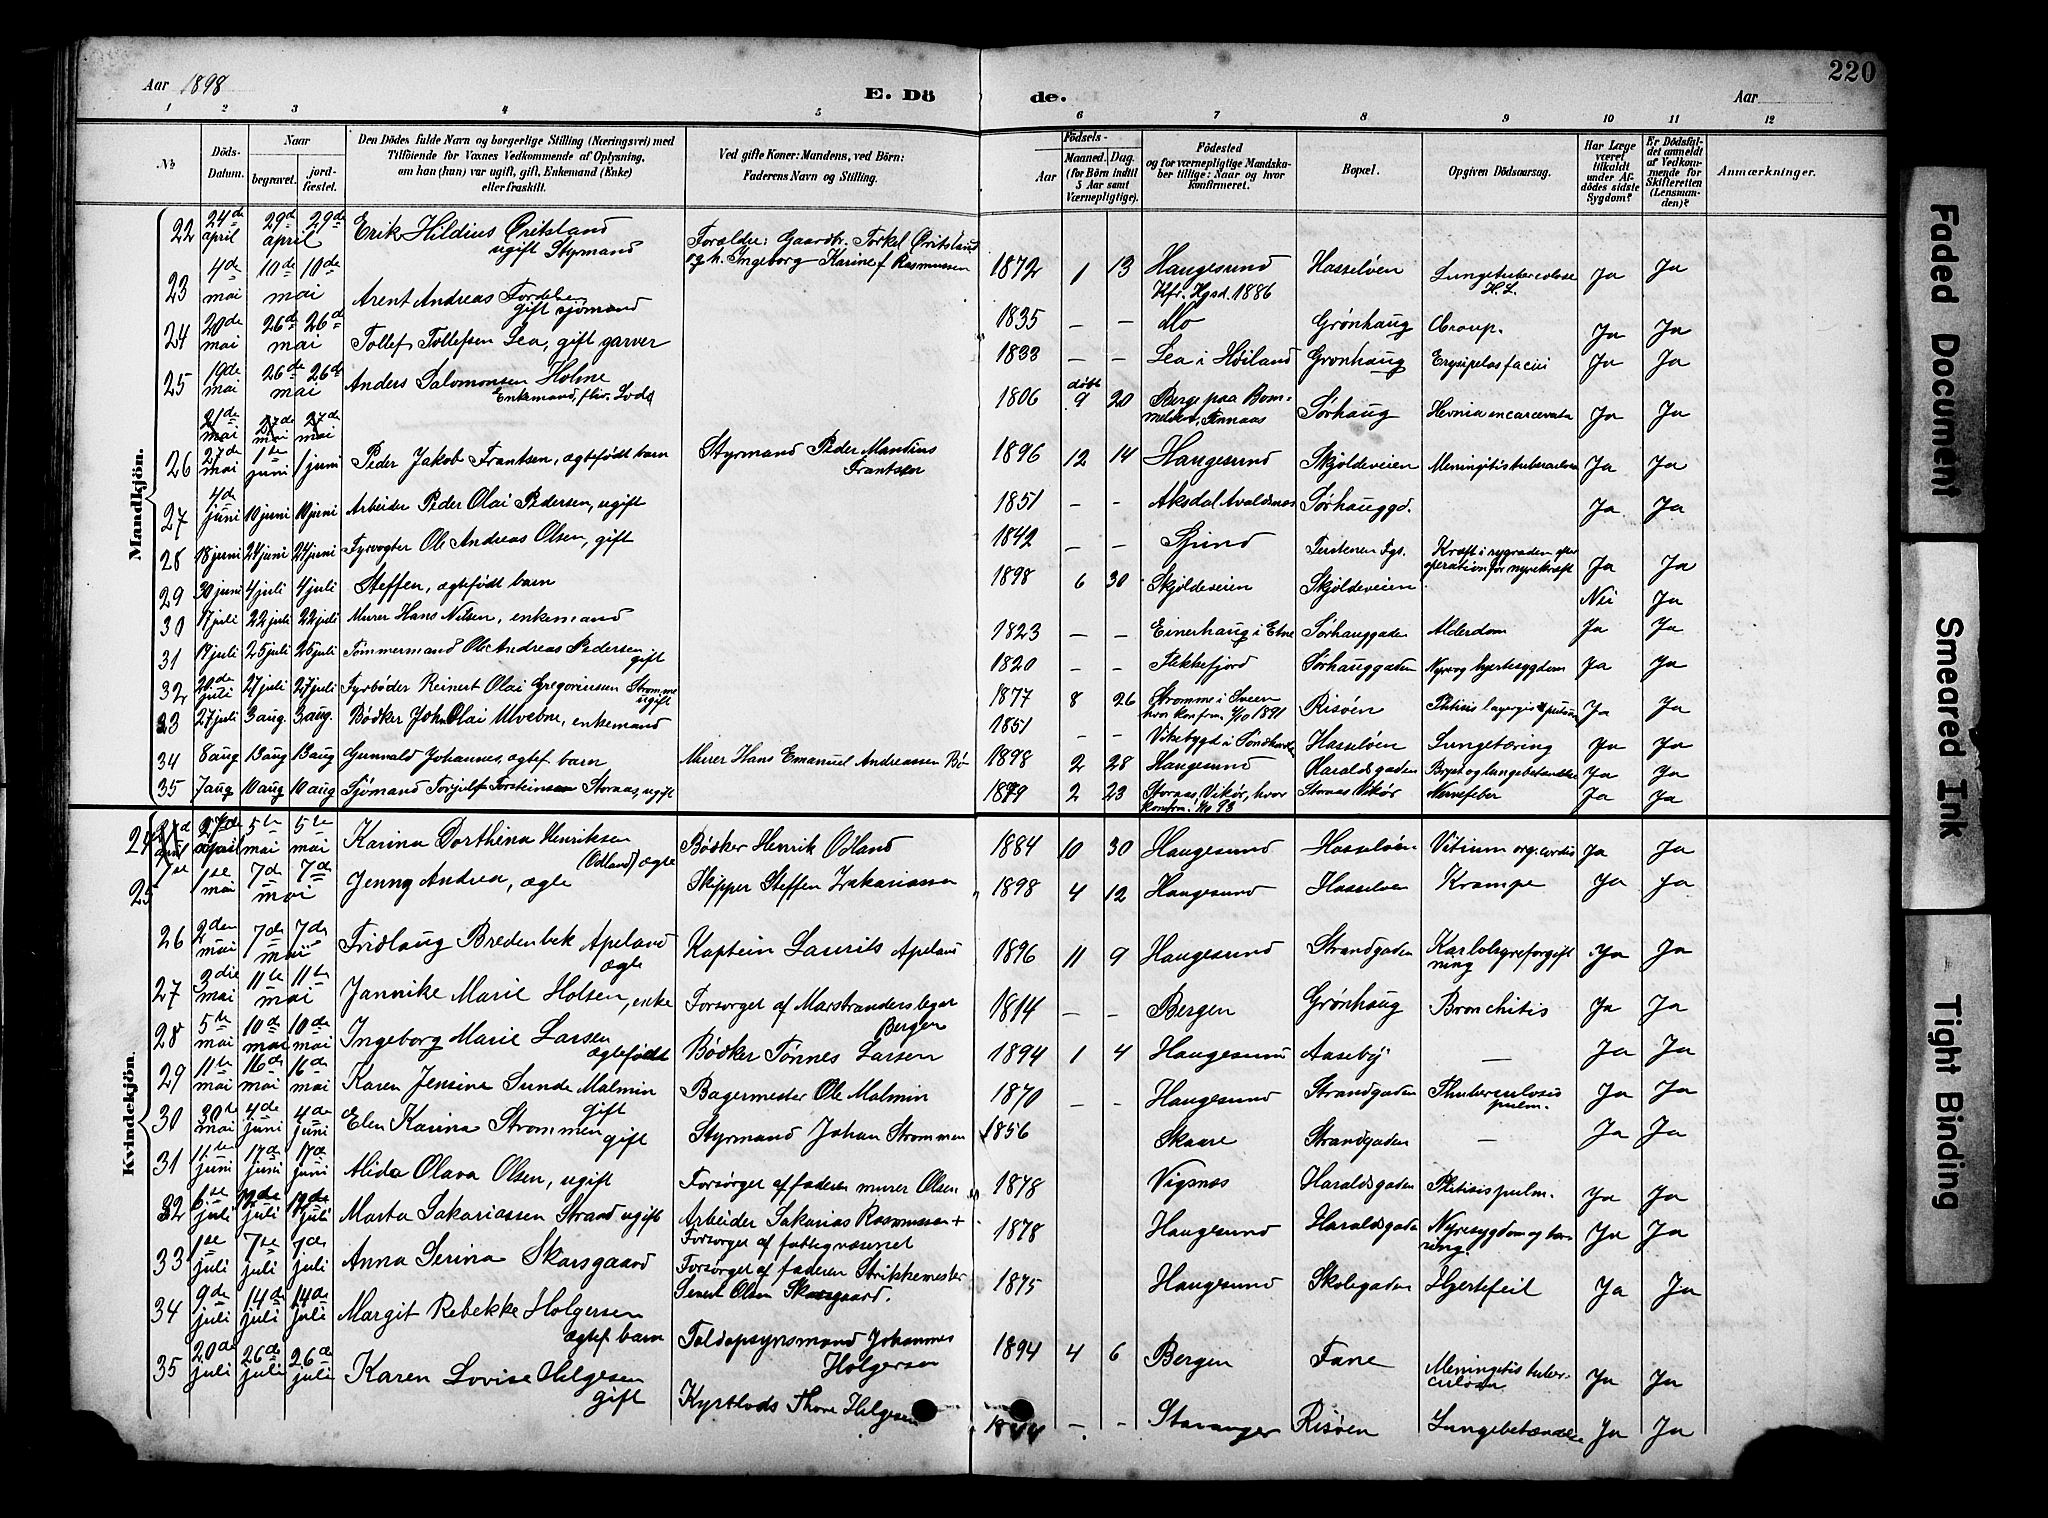 220
Aar 1898
E. Dö
de.
Aar
1 2 3 4 5 6 7 8 9 10 11 12
№
Döds-Datum.
Naar
begravet.
jord-fæstet.
Den Dödes fulde Navn og borgerlige Stilling (Næringsvei) med Tilföiende for Voxnes Vedkommende af Oplysning, om han (hun) var ugift, gift, Enkemand (Enke) eller fraskilt.
Ved gifte Koner: Mandens, ved Börn: Faderens Navn og Stilling.
Födsels-
Aar
Maaned. Dag.
(for Börn indtil 5 Aar samt Værnepligtige).
Födested og for værnepligtige Mandskaber tillige: Naar og hvor konfirmeret.
Bopæl.
Opgiven Dödsaarsag.
Har Læge været tilkaldt under Afdödes sidste Sygdom?
Er Dödsfaldet anmeldt af Vedkommende for Skifteretten (Lensmanden)?
Anmærkninger.
Mandkjön.
22 24de april 29de april 29de Erik Hildius Øritsland ugift Styrmand Forældre: Gaardbr. Torkel Øritsland og h. Ingeborg Karine f Rasmussen 1872 1 13 Haugesund Kfr. Hgsd. 1886 Hasseløen Lungetuberculose H.L. Ja Ja
23 4de mai 10de mai 10de Arent Andreas gift sjömand 1835 — — Mo Grønhaug Croup. Ja Ja
24 20de mai 26de mai 26de Tollef Tollefsen Lea, gift garver 1833 — — Lea i Höiland Grønhaug Erysipelas faciei Ja Ja
25 19de mai 26de mai 26de Anders Salomonsen Holme Enkemand, fhv. Lods 1806 döbt 9 20 Berge paa Bommelöen, Finnaas Sørhaug Hernia incarcerata Ja Ja
21de mai 27de mai 27de mai
26 27de mai 1te juni 1 juni Peder Jakob Frantsen, ægtefödt barn Styrmand Peder Mandius Frantsen 1896 12 14 Haugesund Skjoldeveien Meningitis tuberculosa Ja Ja
27 4de juni 10 juni 10 juni Arbeider Peder Olai Pedersen, ugift 1851 — — Aksdal Avaldsnæs Sørhauggd. Ja Ja
28 18 juni 24 juni 24 juni Fyrvogter Ole Andreas Olsen, gift 1842 — — Kræft i rygraden efter operation for nyrekræft Ja Ja
29 30 juni 4 juli 4 juli Steffen, ægtefödt barn 1898 6 30 Skjoldeveien Skjoldeveien Nei Ja
30 17 juli 22 juli 22 juli Murer Hans Nilsen, enkemand 1823 — — Einerhaug i Etne Sørhauggaden Alderdom Ja Ja
31 19 juli 25 juli 25 juli Tömmermand Ole Andreas Pedersen gift 1820 — — Flekkefjord Sørhauggaden Nyre og hjertesygdom Ja Ja
32 juli 27 juli 27 juli Fyrböder Reinert Olai Gregoriusen Strømme ugift 1877 8 26 Strømme i Sveen hvor konfirm. 1891 Risöen Ja Ja
33 27 juli 3 aug. 3 aug. Bödker John Olai Ulvebne, enkemand 1851 — — Vikebygd i Söndhordl. Hasseløen Lungetæring Ja Ja
34 8 aug 13 aug 13 aug Gunvald Johannes, ægtef barn Murer Hans Emanuel Andreassen Bö 1898 2 28 Haugesund Haraldsgaden Bryst og lungebetændelse Ja Ja
35 7 aug 10 aug 10 aug Sjömand Torjuls Torsteinsen Stornæs, ugift 1879 2 23 Stornæs, Vikør, hvor konfirm. 93 Stornæs Vikør Nervefeber Ja Ja
Kvindekjön.
24 27de april 5te mai 5te mai Karina Dorthina Henriksen (Odland) ægte Bödker Henrik Odland 1884 10 30 Haugesund Hasseløen Vitium org. cordis Ja Ja
25 1ste mai 7de mai 7de Jenny Andrea, ægte Skipper Steffen Zakariassen 1898 4 12 Haugesund Hasseløen Krampe Ja Ja
26 2den mai 7de mai 7de Fridlaug Bredenbek Apeland ægte Kaptein Laurits Apeland 1896 11 9 Haugesund Strandgaden Karbolsyreforgiftning Ja Ja
27 3die mai 11te mai 11te Jannike Marie Holsen, enke Forsørget af Marstranders legat Bergen 1814 — — Bergen Grønhaug Bronchitis Ja Ja
28 5te mai 10de mai 10de mai Ingeborg Marie Larsen ægtefödt Bödker Tönnes Larsen 1894 1 4 Haugesund Aaseby — Ja Ja
29 11te mai 16de mai 16de mai Karen Jensine Sunde Malmin gift Bagermester Ole Malmin 1870 — — Haugesund Strandgaden Thuberculosis pulm. Ja Ja
30 30te mai 4de juni 4de juni Elen Karina Strømmen gift Styrmand Johan Strømmen 1856 Skaare Strandgaden — Ja Ja
31 11te juni 17de juni 17de juni Alida Olava Olsen, ugift Forsørget af faderen murer Olsen 1878 Vigsnæs Haraldsgaden Phtisis pulm. Ja Ja
32 juli juli juli Marta Sakariassen Strand ugift Arbeider Sakarias Rasmussen + Forsørget af fattigvæsenet 1878 Haugesund Haraldsgaden Nyresygdom og tæring Ja Ja
33 1ste juli 7de juli 7de juli Anna Serina Skarsgaard Forsørget af faderen Strikkemester Sivert Olsen Skarsgaard. 1875 Haugesund Skolegaden Hjertefeil Ja Ja
34 9de juli 14de juli 14de juli Margit Rebekke Holgersen ægtef barn Toldopsynsmand Johannes Holgersen 1894 4 6 Bergen Fane Meningitis tuberculosa Ja Ja
35 20de juli 26de juli 26de juli Karen Lovise Helgesen gift Kystlods Thore Helgesen 1844 — — Stavanger Risöen Lungebetændelse Ja Ja
Faded Document
Smeared Ink
Tight Binding